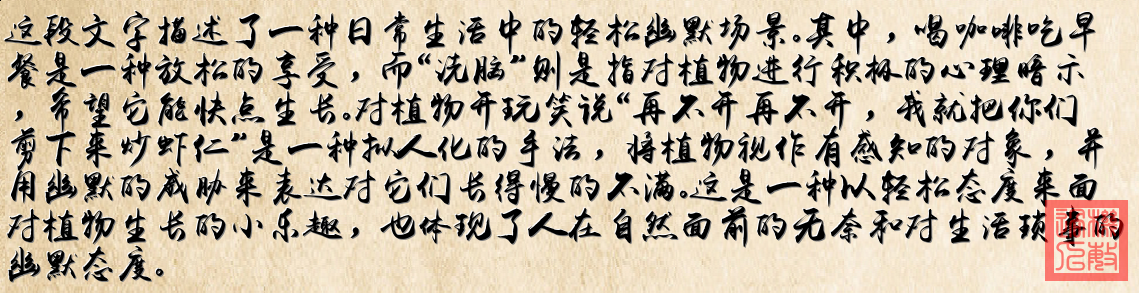 这段文字描述了一种日常生活中的轻松幽默场景。其中，喝咖啡吃早
餐是一种放松的享受，而“洗脑”则是指对植物进行积极的心理暗示
，希望它能快点生长。对植物开玩笑说“再不开再不开，我就把你们
剪下来炒虾仁”是一种拟人化的手法，将植物视作有感知的对象，并
用幽默的威胁来表达对它们长得慢的不满。这是一种以轻松态度来面
对植物生长的小乐趣，也体现了人在自然面前的无奈和对生活琐事的
幽默态度。